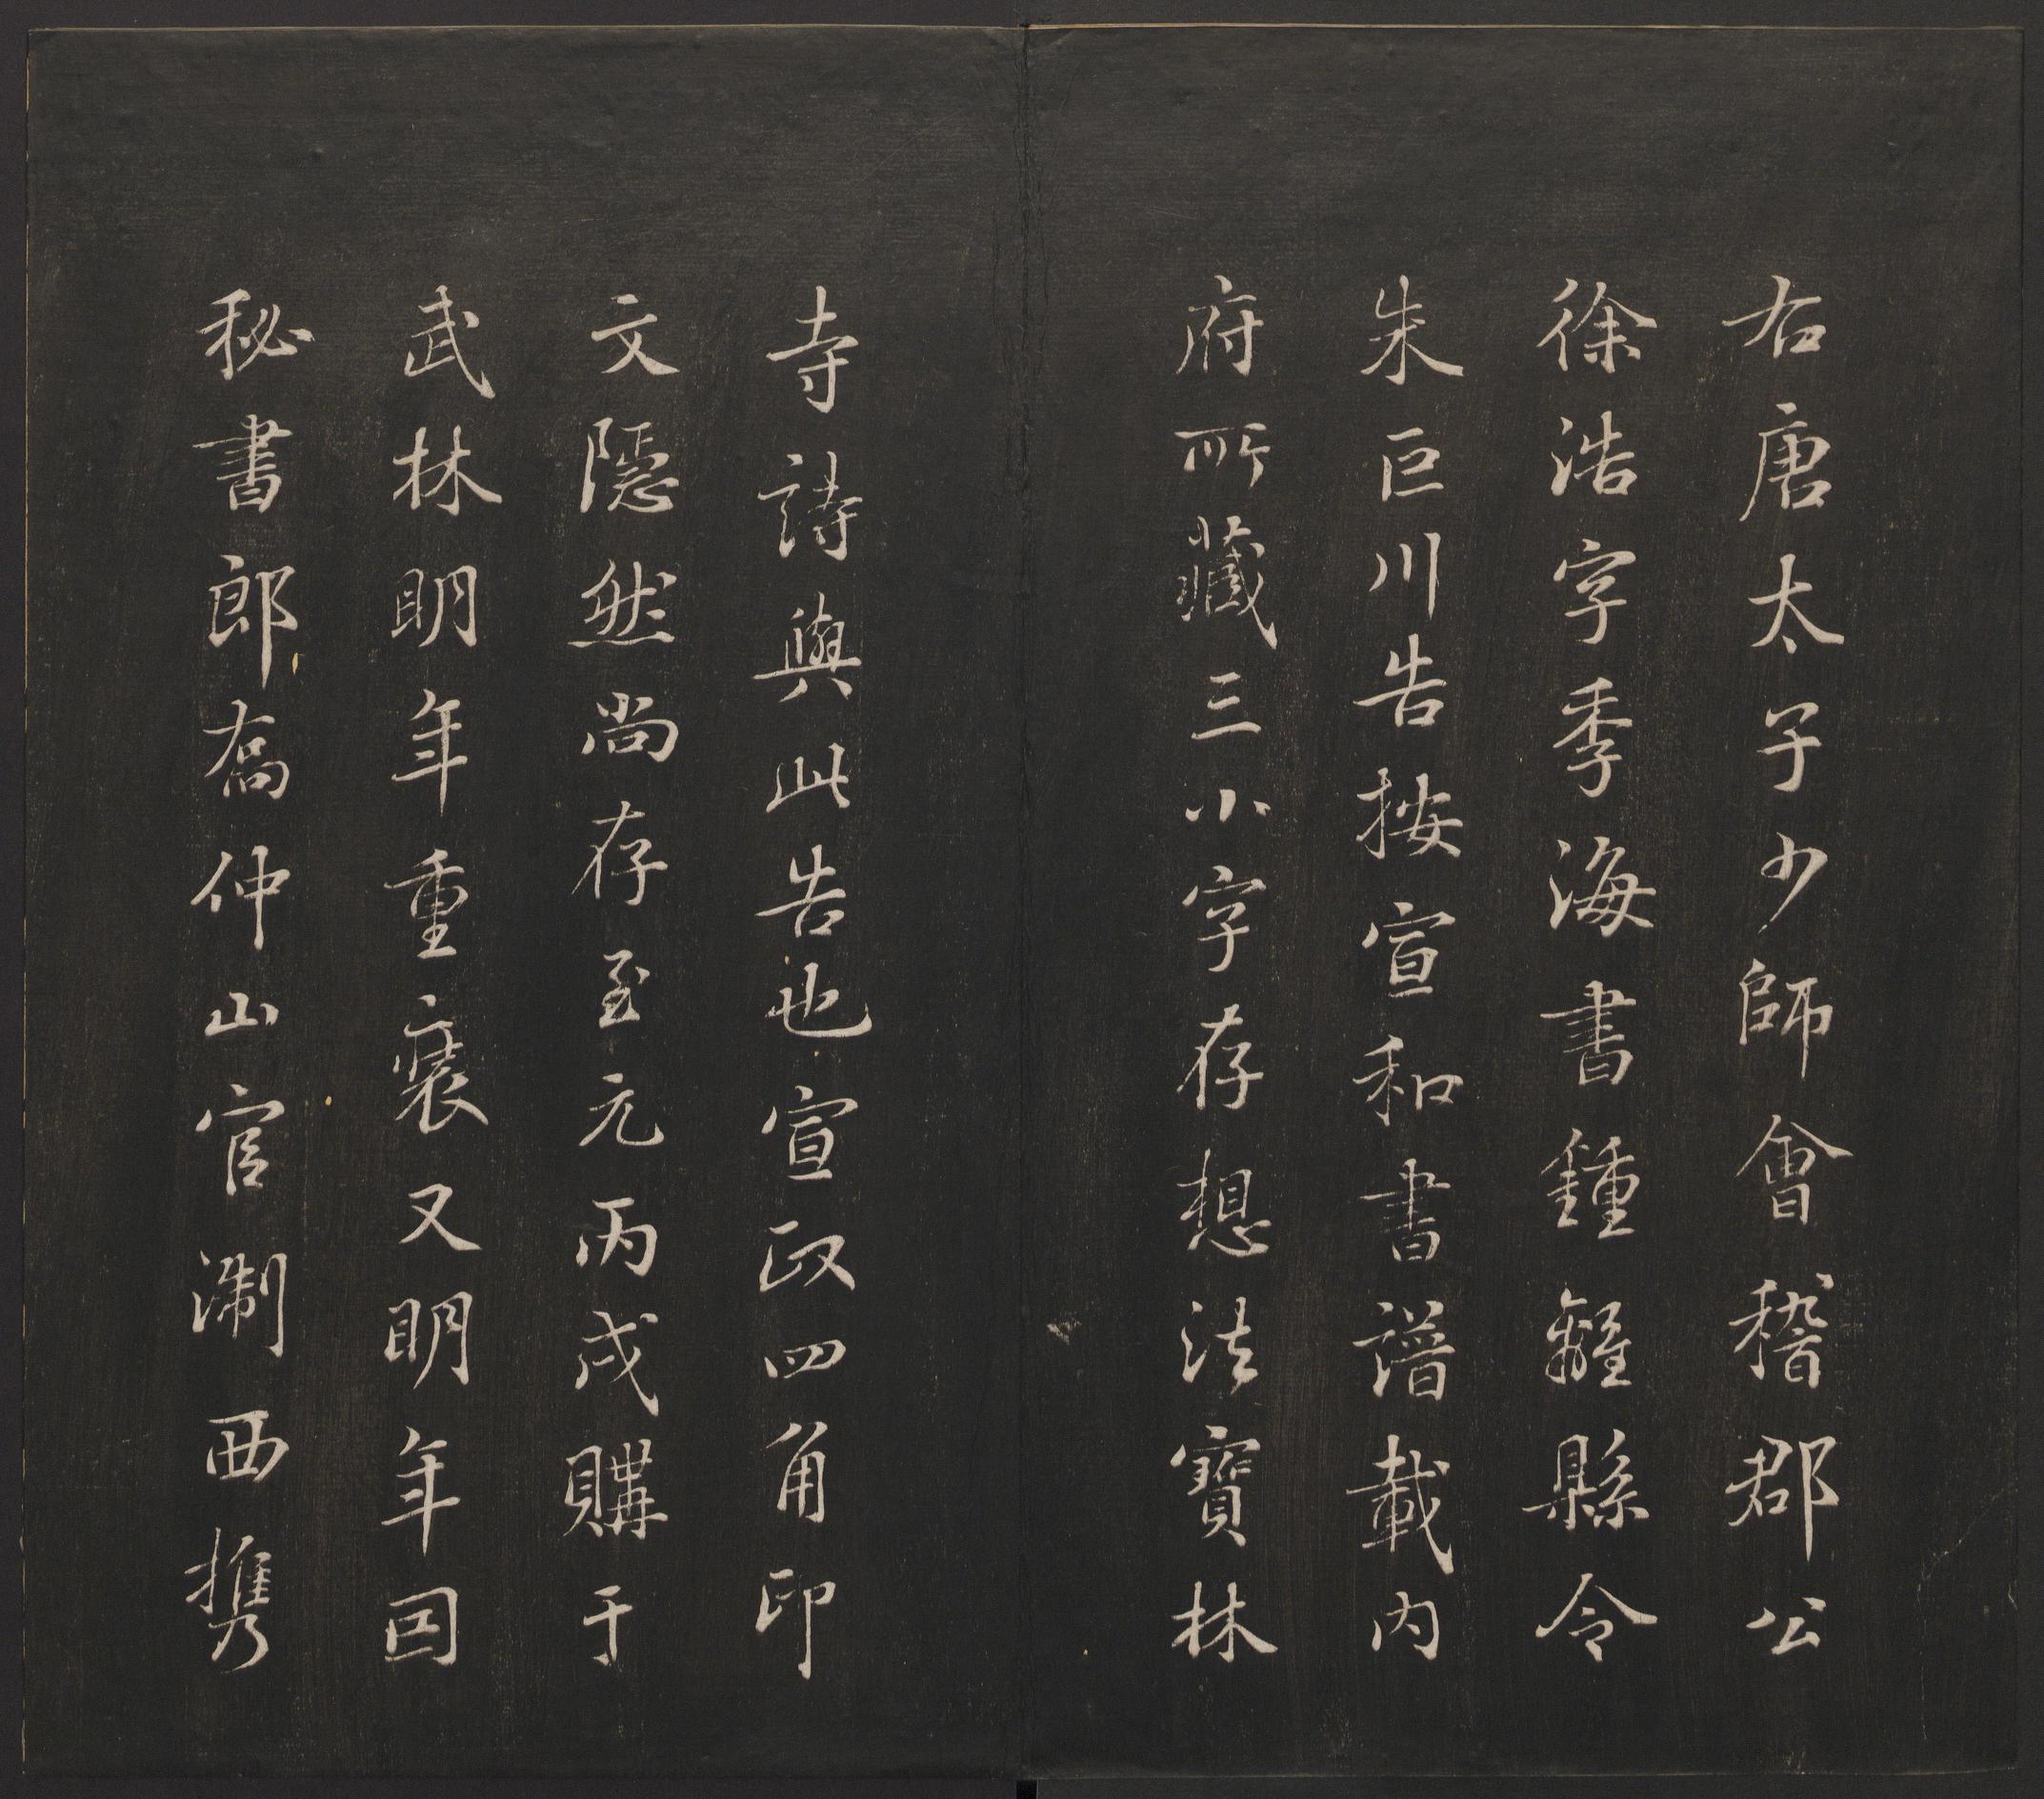 右唐太子少師會稽郡公
徐浩字季海書鍾離縣令
朱巨川告按宣和書譜載內
府所藏三小字存想法寶林
寺詩與此告也宣政四角印
文隱然尚存至元丙戌購于
武林明年重裝又明年因
秘書郎喬仲山官淛西携